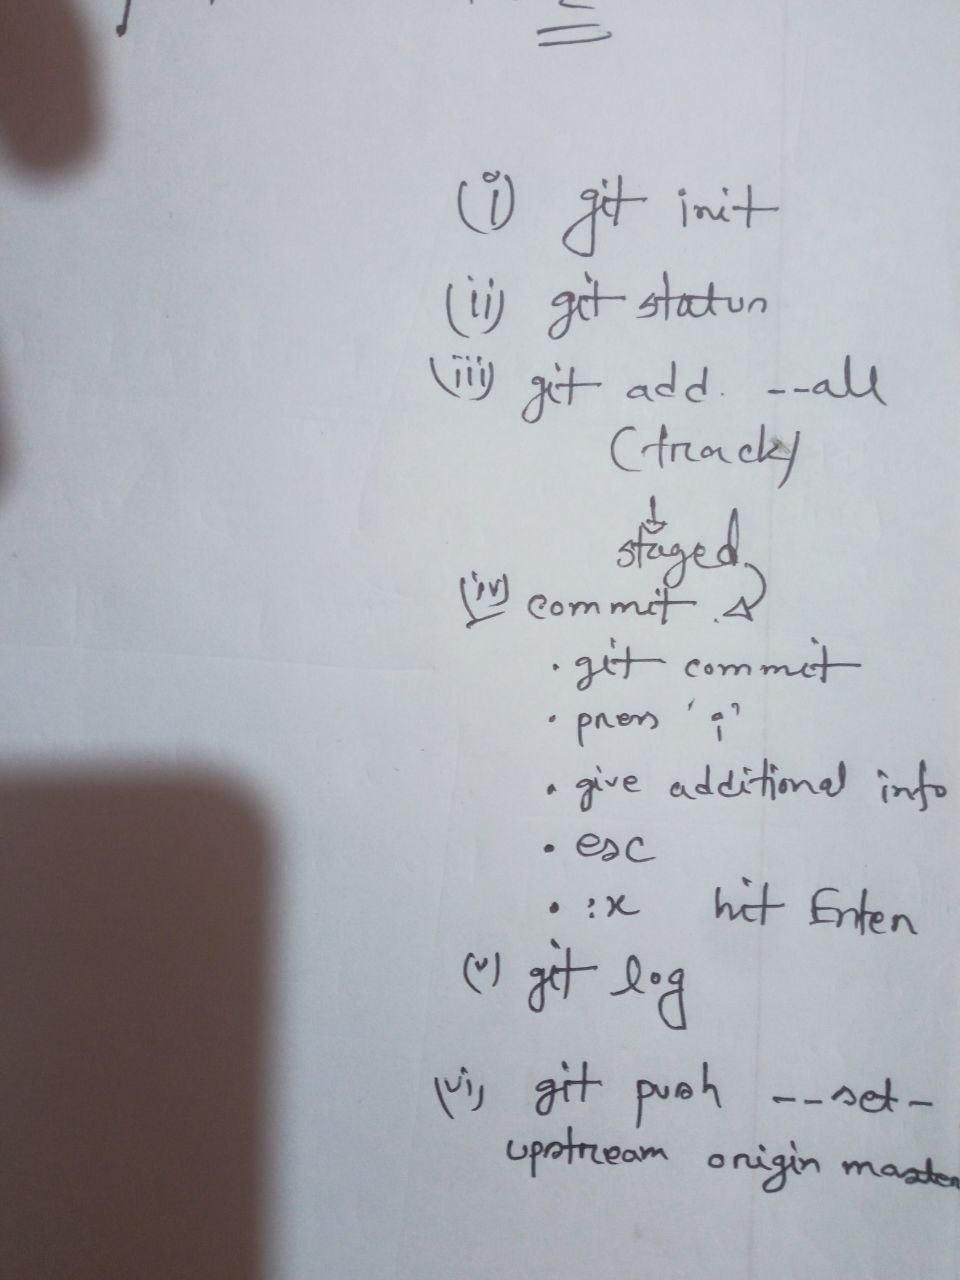 (i) git init
(ii) git status
(iii) git add. --all
(track)
staged
(iv) commit
• git commit
• press 'i'
• give additional info
• esc
• :x hit Enter
(v) git log
(vi) git push --set-
upstream origin master